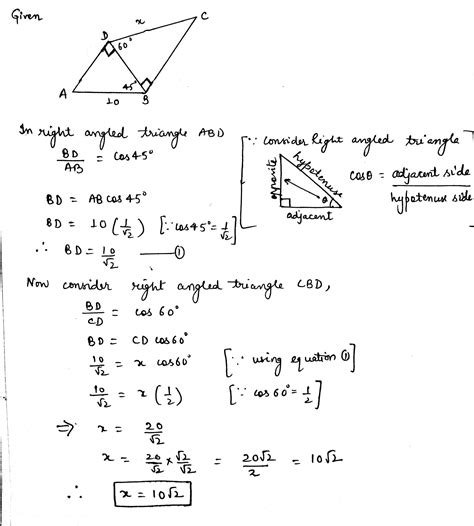 Given
C
x
D
60°
45°
A
10
B
In right angled triangle ABD
BD/AB = cos45°
BD = AB cos45°
BD = 10 (1/√2) [∵ cos45° = 1/√2]
∴ BD = 10/√2 —— ①
[∵ consider right angled triangle
opposite
hypotenuse
θ
adjacent
cosθ = adjacent side / hypotenuse side]
Now consider right angled triangle CBD,
BD/CD = cos 60°
BD = CD cos60°
10/√2 = x cos60° [∵ using equation ①]
10/√2 = x (1/2) [∵ cos60° = 1/2]
⇒ x = 20/√2
x = 20/√2 × √2/√2 = 20√2/2 = 10√2
∴ x = 10√2